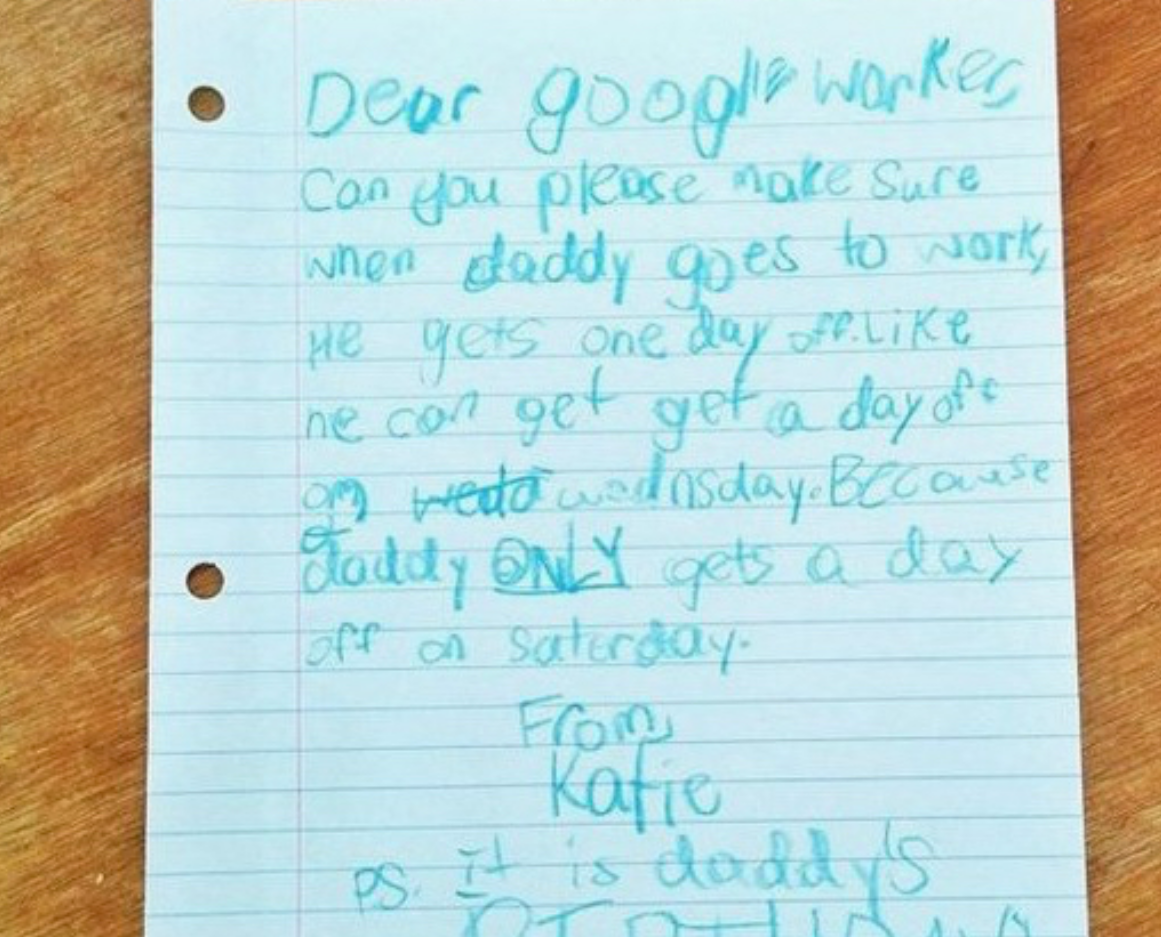 Dear google worker,
Can you please make sure
when daddy goes to work,
He gets one day off. Like
he can get get a day off
on wednsday. Because
daddy ONLY gets a day
off on Saterday.
From,
Katie
PS. It is daddy's